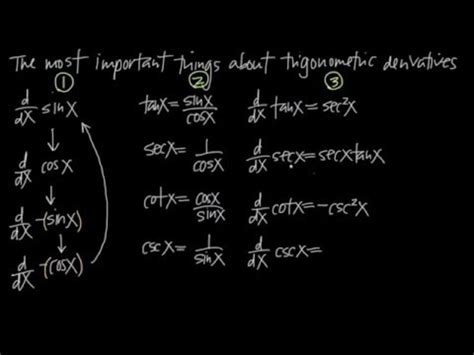 The most important things about trigonometric derivatives
① ② ③
d/dx sinx
↓
d/dx cosx
↓
d/dx -(sinx)
↓
d/dx -(cosx)
tanx = sinx/cosx
secx = 1/cosx
cotx = cosx/sinx
cscx = 1/sinx
d/dx tanx = sec²x
d/dx secx = secxtanx
d/dx cotx = -csc²x
d/dx cscx =